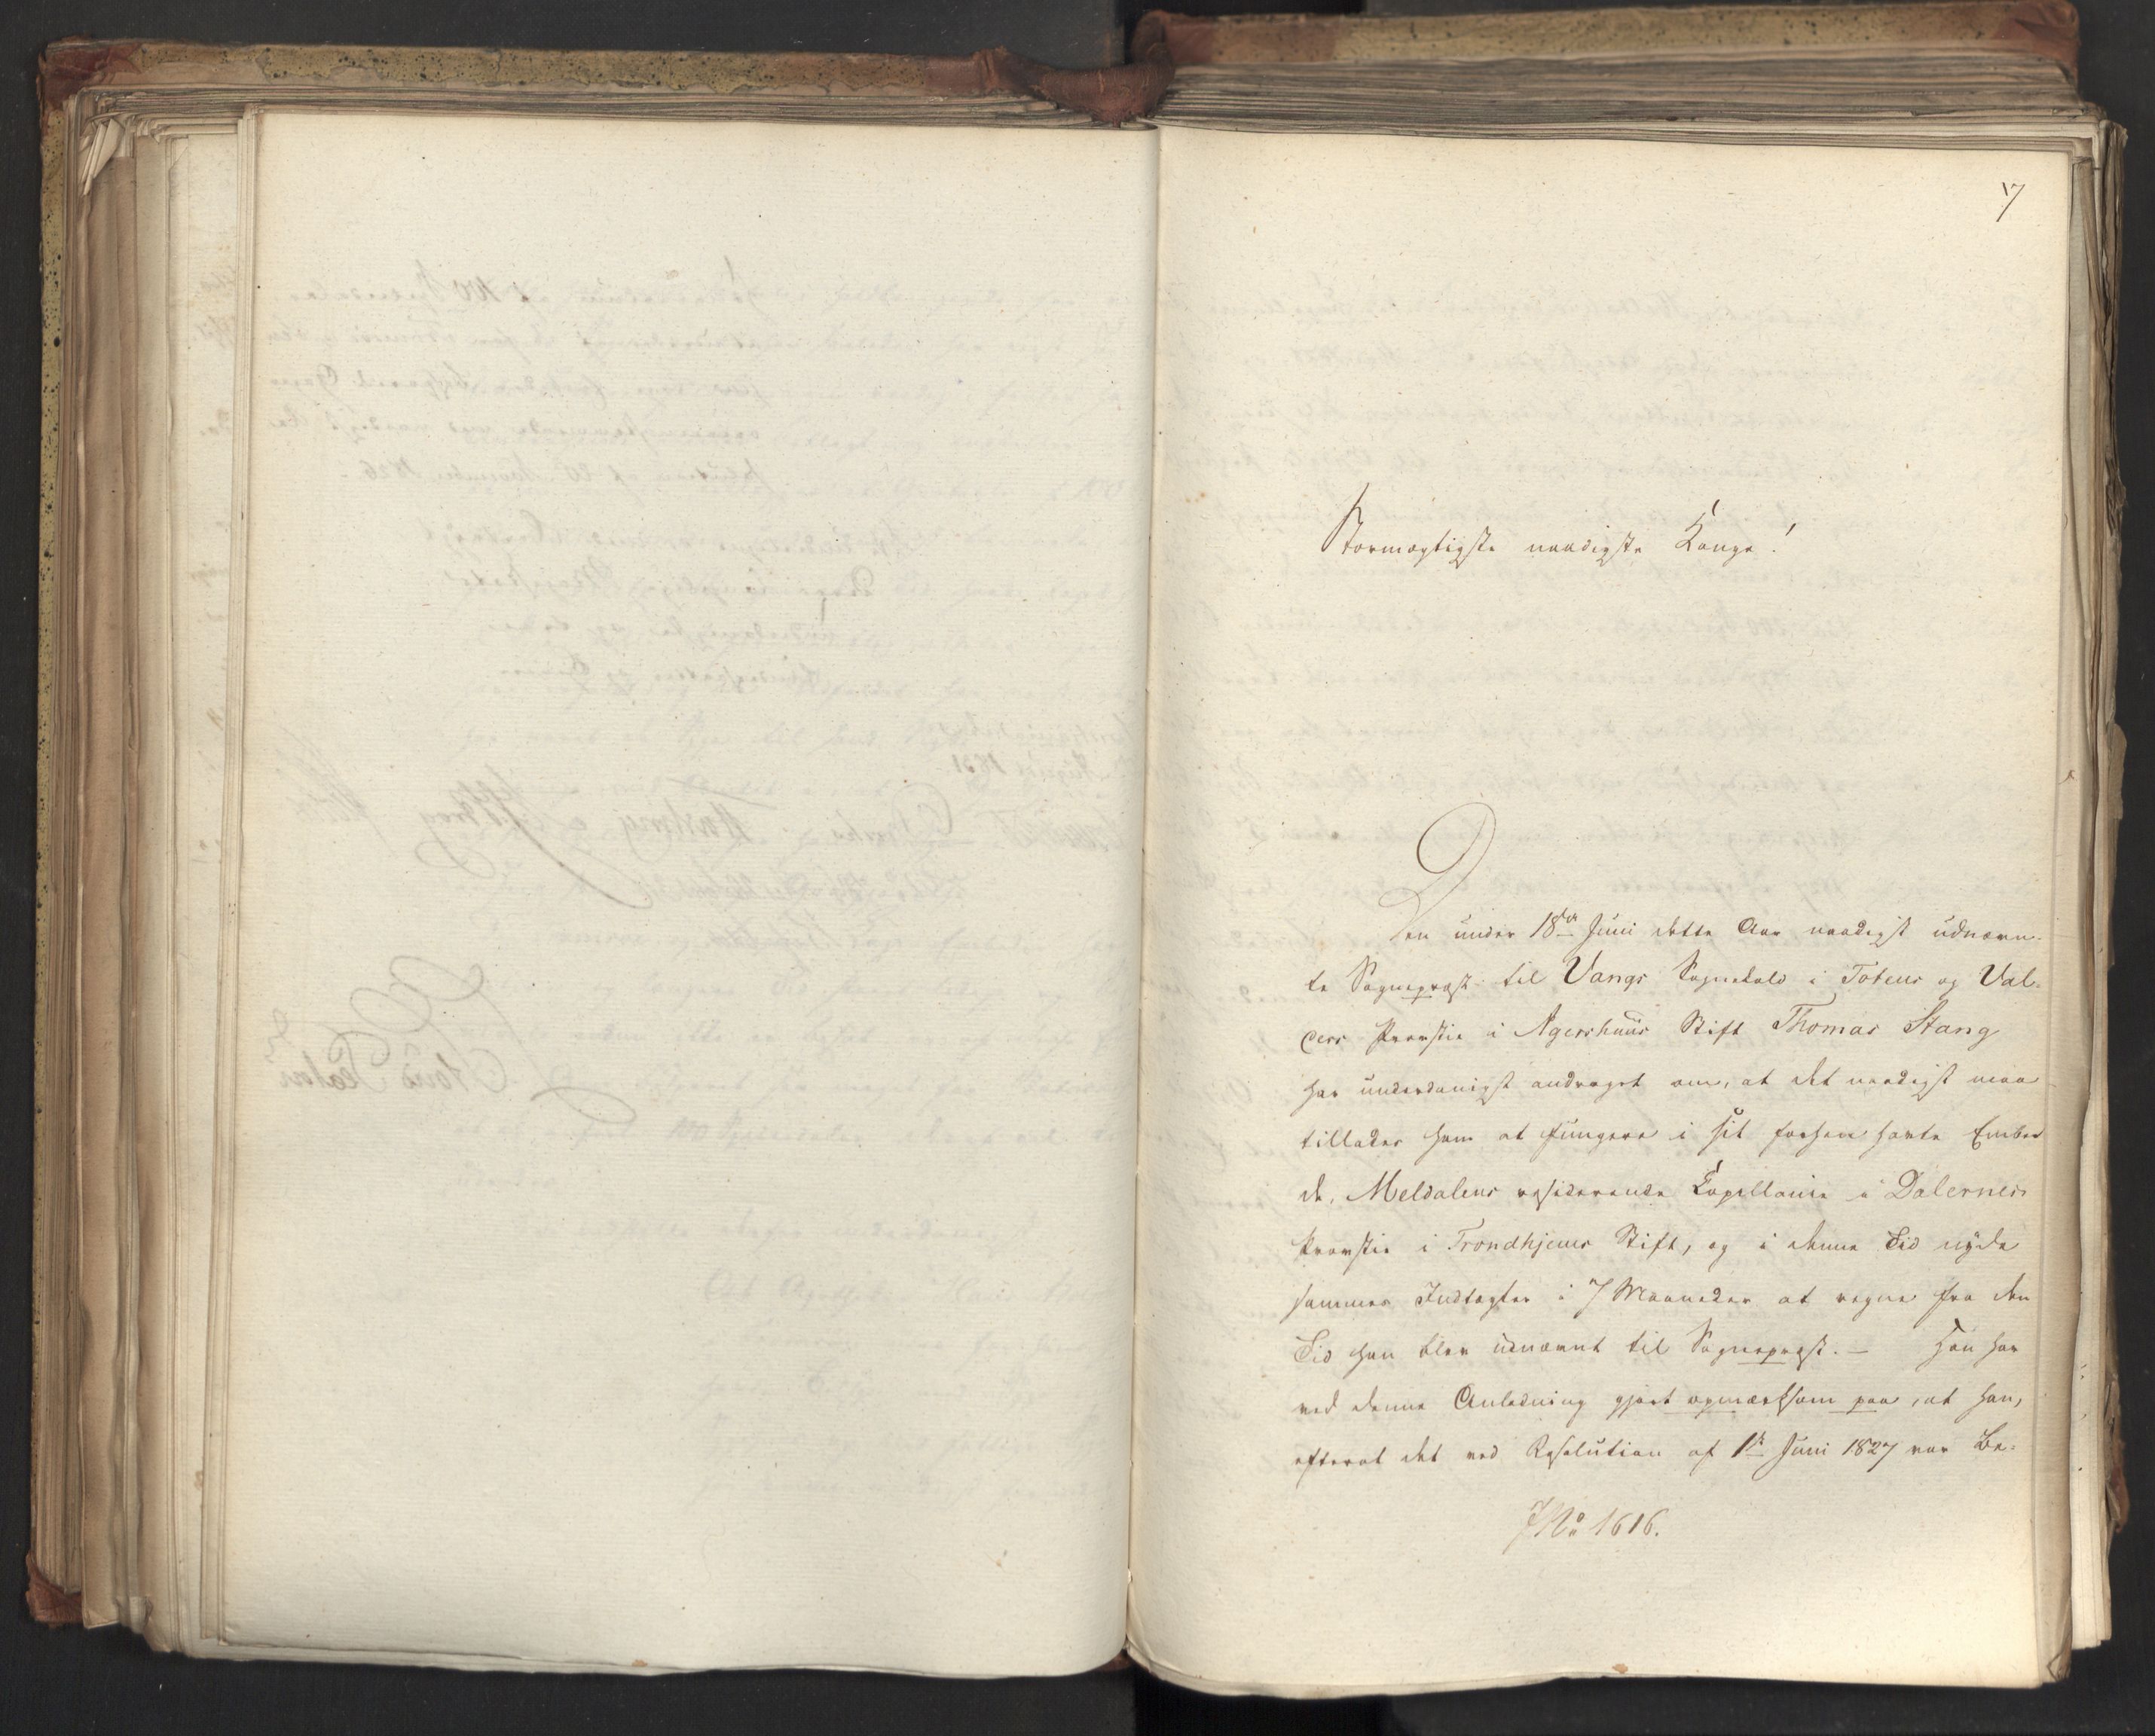 7
Stormægtigste naadigste Konge!
Den under 18de Juni dette Aar naadigst udnævn-
te Sognepræst til Vangs Sognekald i Totens og Val-
ders Provstie i Agershuus Stift Thomas Stang
har underdanigst andraget om, at det naadigst maa
tillades ham at fungere i sit forhen havte Embe
de, Meldalens residerende Capellanie i Dalernes
Provstie i Trondhjems Stift, og i denne Tid nyde
sammes Indtægter i 7 Maaneder at regne fra den
Tid han blev udnævnt til Sognepræst. – Han har
ved denne Anledning gjort opmærksom paa, at han,
efterat det ved Resolution af 1ste Juni 1827 var Be-
JNo 1616.